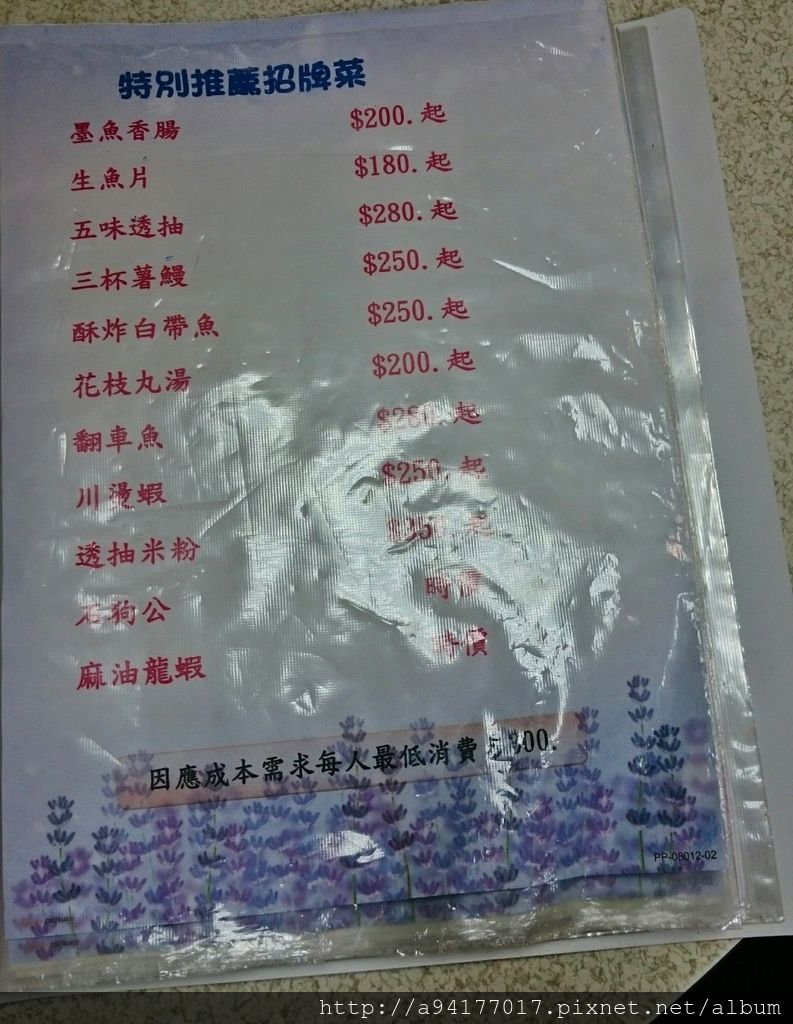 特別推薦招牌菜
墨魚香腸 $200.起
生魚片 $180.起
五味透抽 $280.起
三杯薯鰻 $250.起
酥炸白帶魚 $250.起
花枝丸湯 $200.起
翻車魚 $280.起
川燙蝦 $250.起
透抽米粉 起
石狗公 時價
麻油龍蝦 時價
因應成本需求每人最低消費
PP-08012-02
http://a94177017.pixnet.net/album